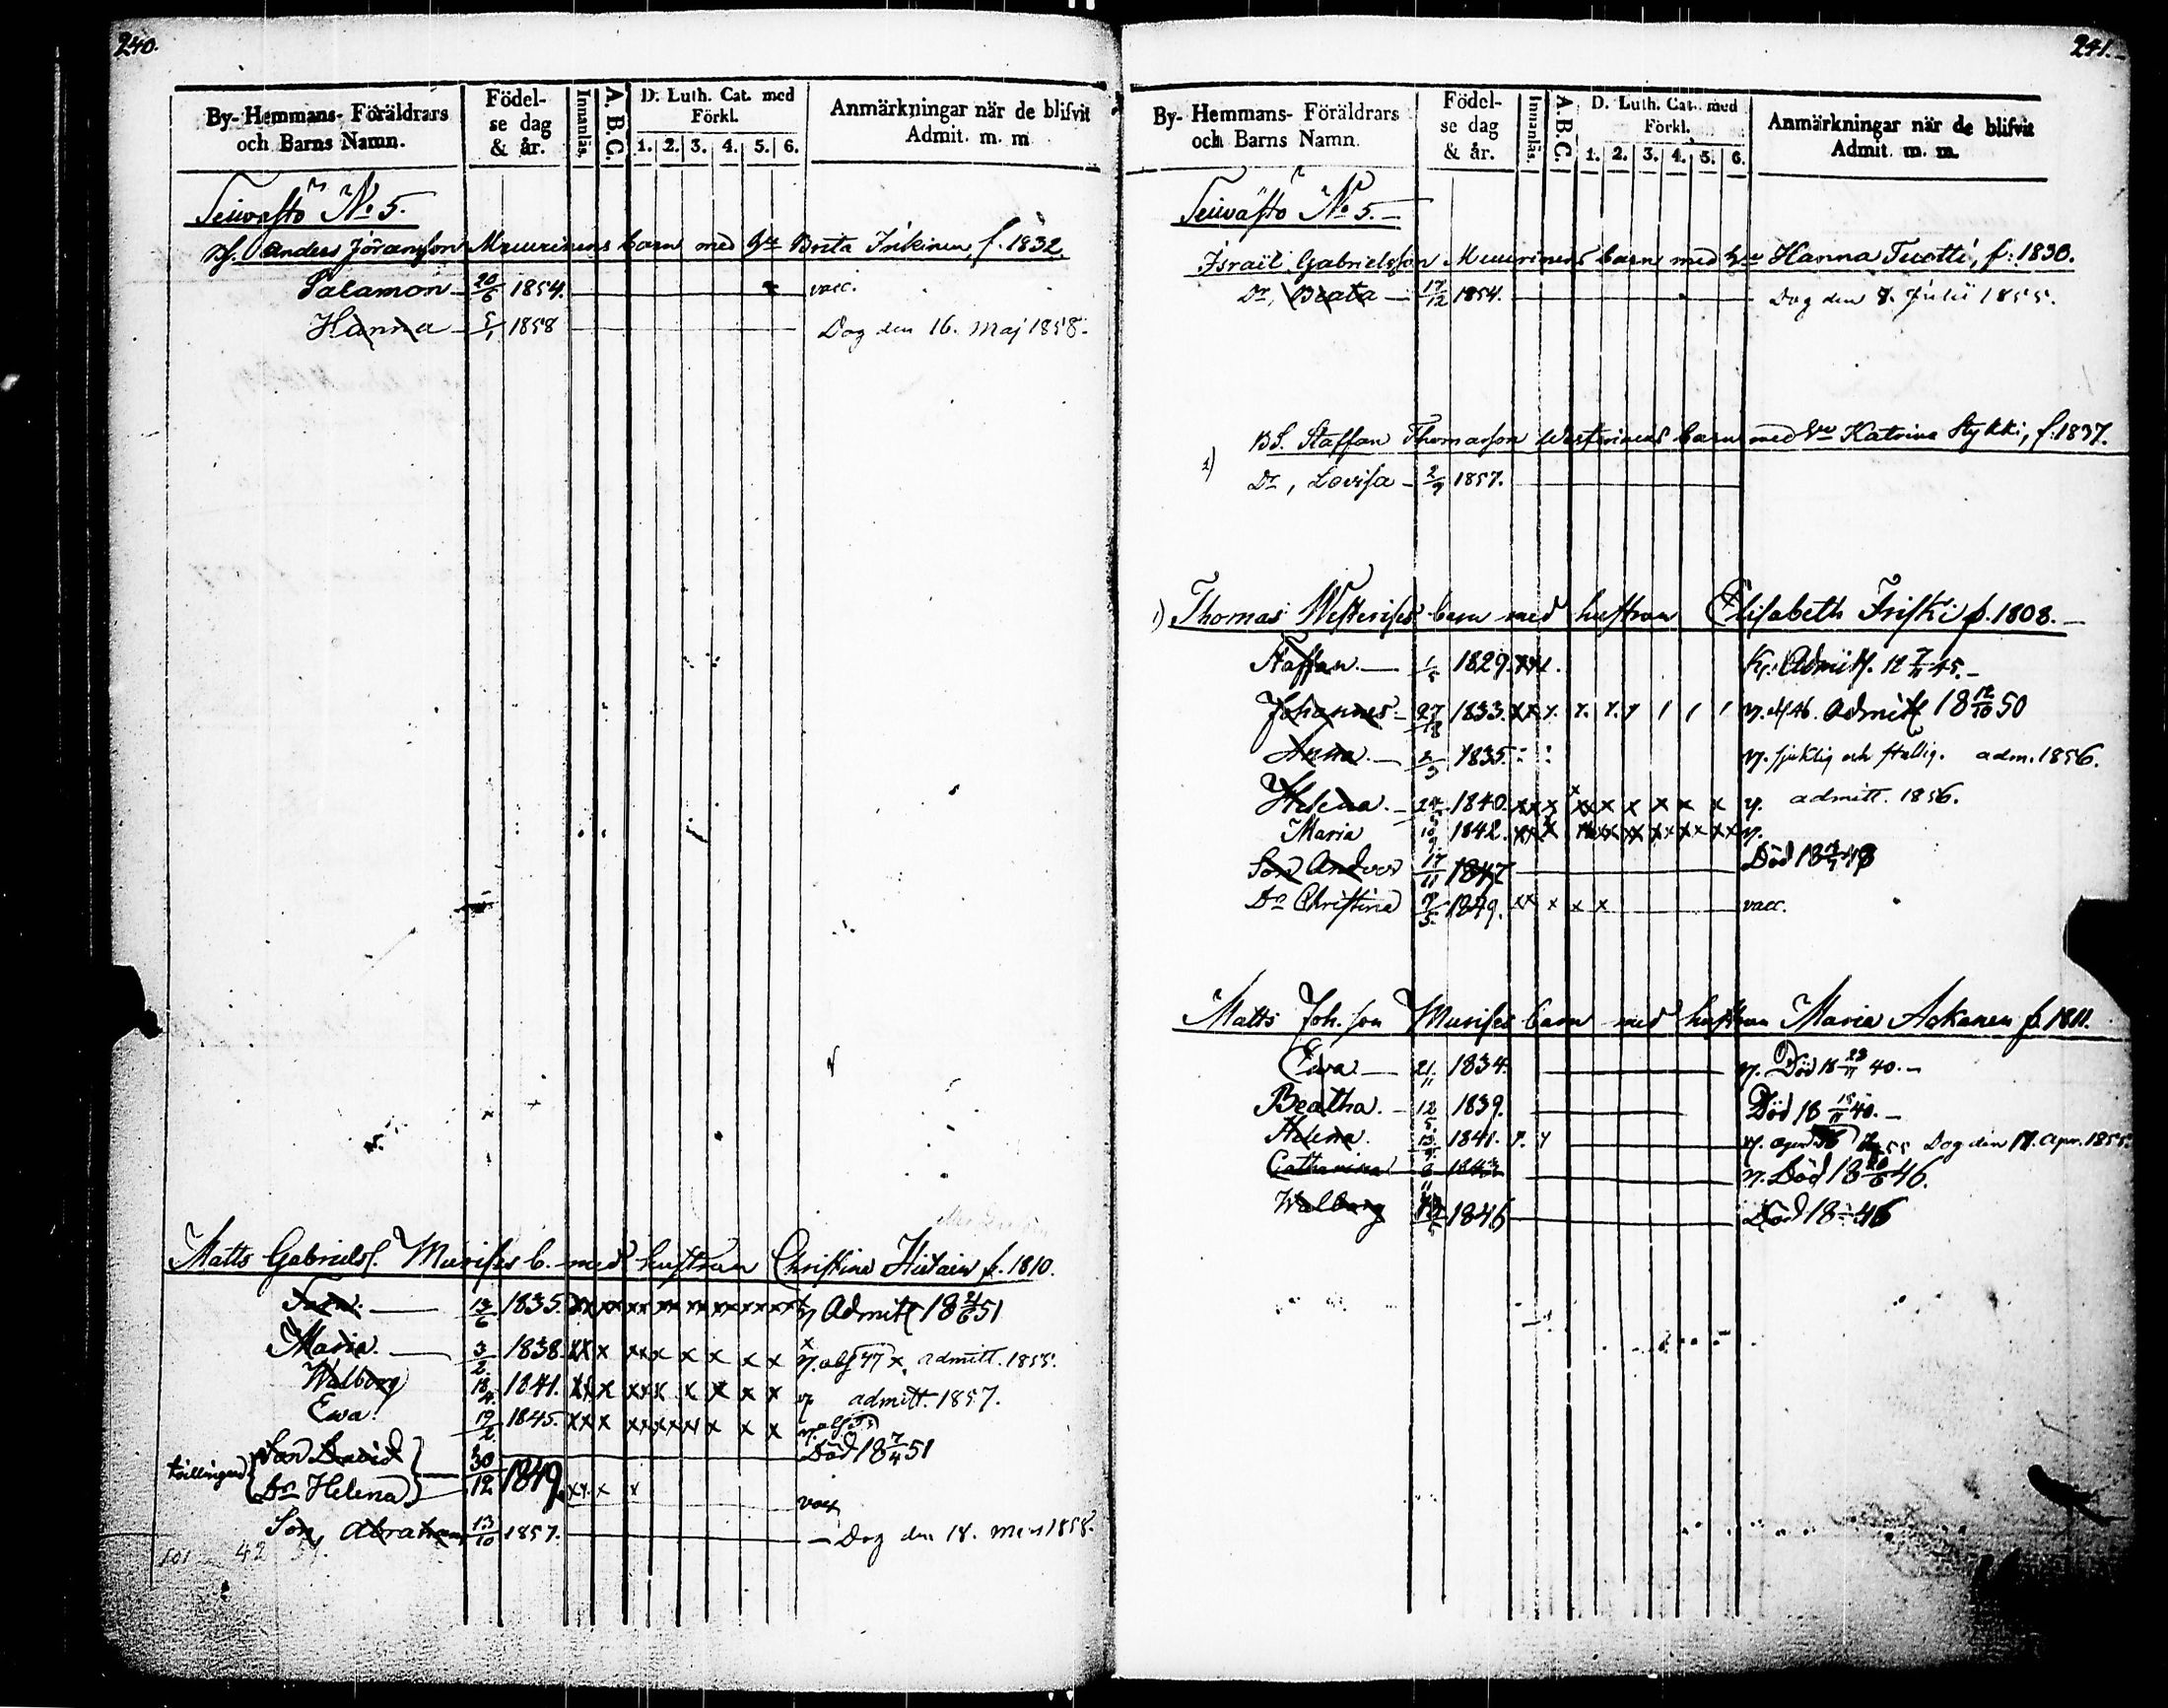 240.
By- Hemmans- Föräldrars och Barns Namn.
Födelse dag & år.
Innanläs.
A. B. C.
D. Luth. Cat. med Förkl.
1. 2. 3. 4. 5. 6.
Anmärkningar när de blifvit Admit. m. m
Seivästö No 5.
Anders Jöransson Meurinens barn med Hu Brita Inkinen, f. 1832.
Salamon 20/6 1854. vacc.
Hanna 5/1 1858 Dog den 16. Maj 1858.
Matts Gabrielss. Murises b. med hustrun Christina f. 1810.
13/6 1835. Admitt 18 51
Maria 3/2 1838. admitt. 1855.
Walborg 18/4 1841. admitt. 1857.
Ewa 19/2 1845.
tvillingar Son David 30/12 1849 Död 18 7/4 51
Dr Helena vacc
Son, Abraham 13/10 1857. Dog den 18. 1858.
101 42
241.
By- Hemmans- Föräldrars och Barns Namn.
Födelse dag & år.
Innanläs.
A. B. C.
D. Luth. Cat. med Förkl.
1. 2. 3. 4. 5. 6.
Anmärkningar när de blifvit Admit. m. m.
Seivästö No 5.
Israel Gabrielsson Meurinens barn med Hu Hanna f. 1830.
Dr, Beata 17/12 1854. Dog den 8. Julii 1855.
2) BS. Staffan Thomasson Westerinens barn med Hu Katrina Stykki, f. 1837.
Dr, Lovisa 2/9 1857.
1) Thomas Westerises barn med hustrun Elisabeth Friski f. 1808.
Staffan 1829. Admitt. 45.
Johannes 27 1833. Admitt 18 12/10 50
Anna 1835. sjuklig och adm. 1856.
Helena 1840. admitt. 1856.
Maria 10/9 1842.
Son Anders 17/11 1847 Död 18 48
Dr Christina 1849. vacc.
Matts Joh. son Murises barn med hustrun Maria Askanen f. 1811.
Ewa 21/11 1834. Död 18 23/11 40.
Beatha 12/5 1839. Död 18 15/11 40.
Helena 1841. Dog den 17. Apr. 1855.
Catharina 1843 Död 18 46.
Walborg 1846 Död 18 46